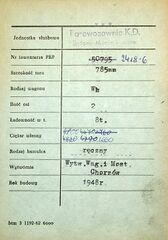 Jednostka służbowa
Parowozownia K.D.
Nr inwentarza PKP 50795 2418-6
Szerokość toru 785mm
Rodzaj wagonu Wh
Ilość osi 2
Ładowność w t. 8t.
Ciężar własny
Rodzaj hamulca ręczny
Wytwórnia Wytw.Wag.i Most. Chorzów
Rok budowy 1948r.